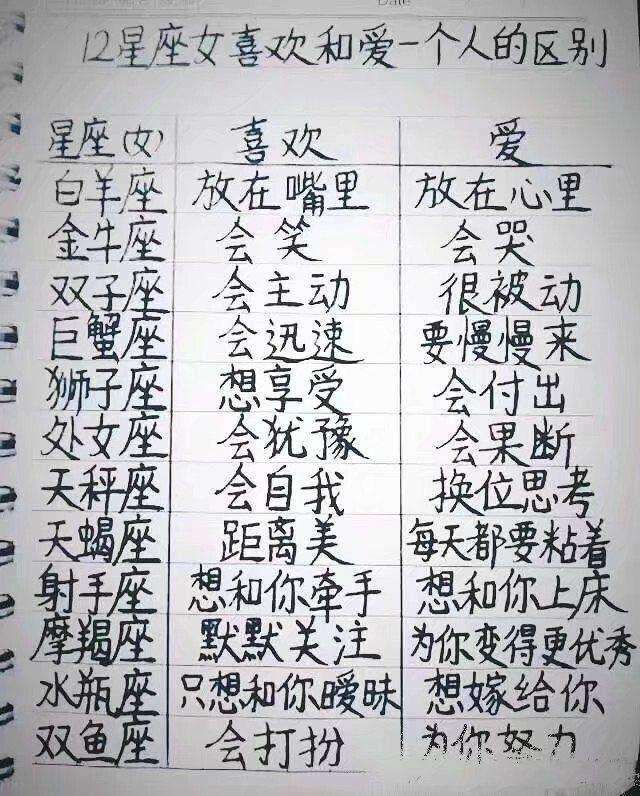 Date
12星座女喜欢和爱一个人的区别
星座(女) 喜欢 爱
白羊座 放在嘴里 放在心里
金牛座 会笑 会哭
双子座 会主动 很被动
巨蟹座 会迅速 要慢慢来
狮子座 想享受 会付出
处女座 会犹豫 会果断
天秤座 会自我 换位思考
天蝎座 距离美 每天都要粘着
射手座 想和你牵手 想和你上床
摩羯座 默默关注 为你变得更优秀
水瓶座 只想和你暧昧 想嫁给你
双鱼座 会打扮 为你努力